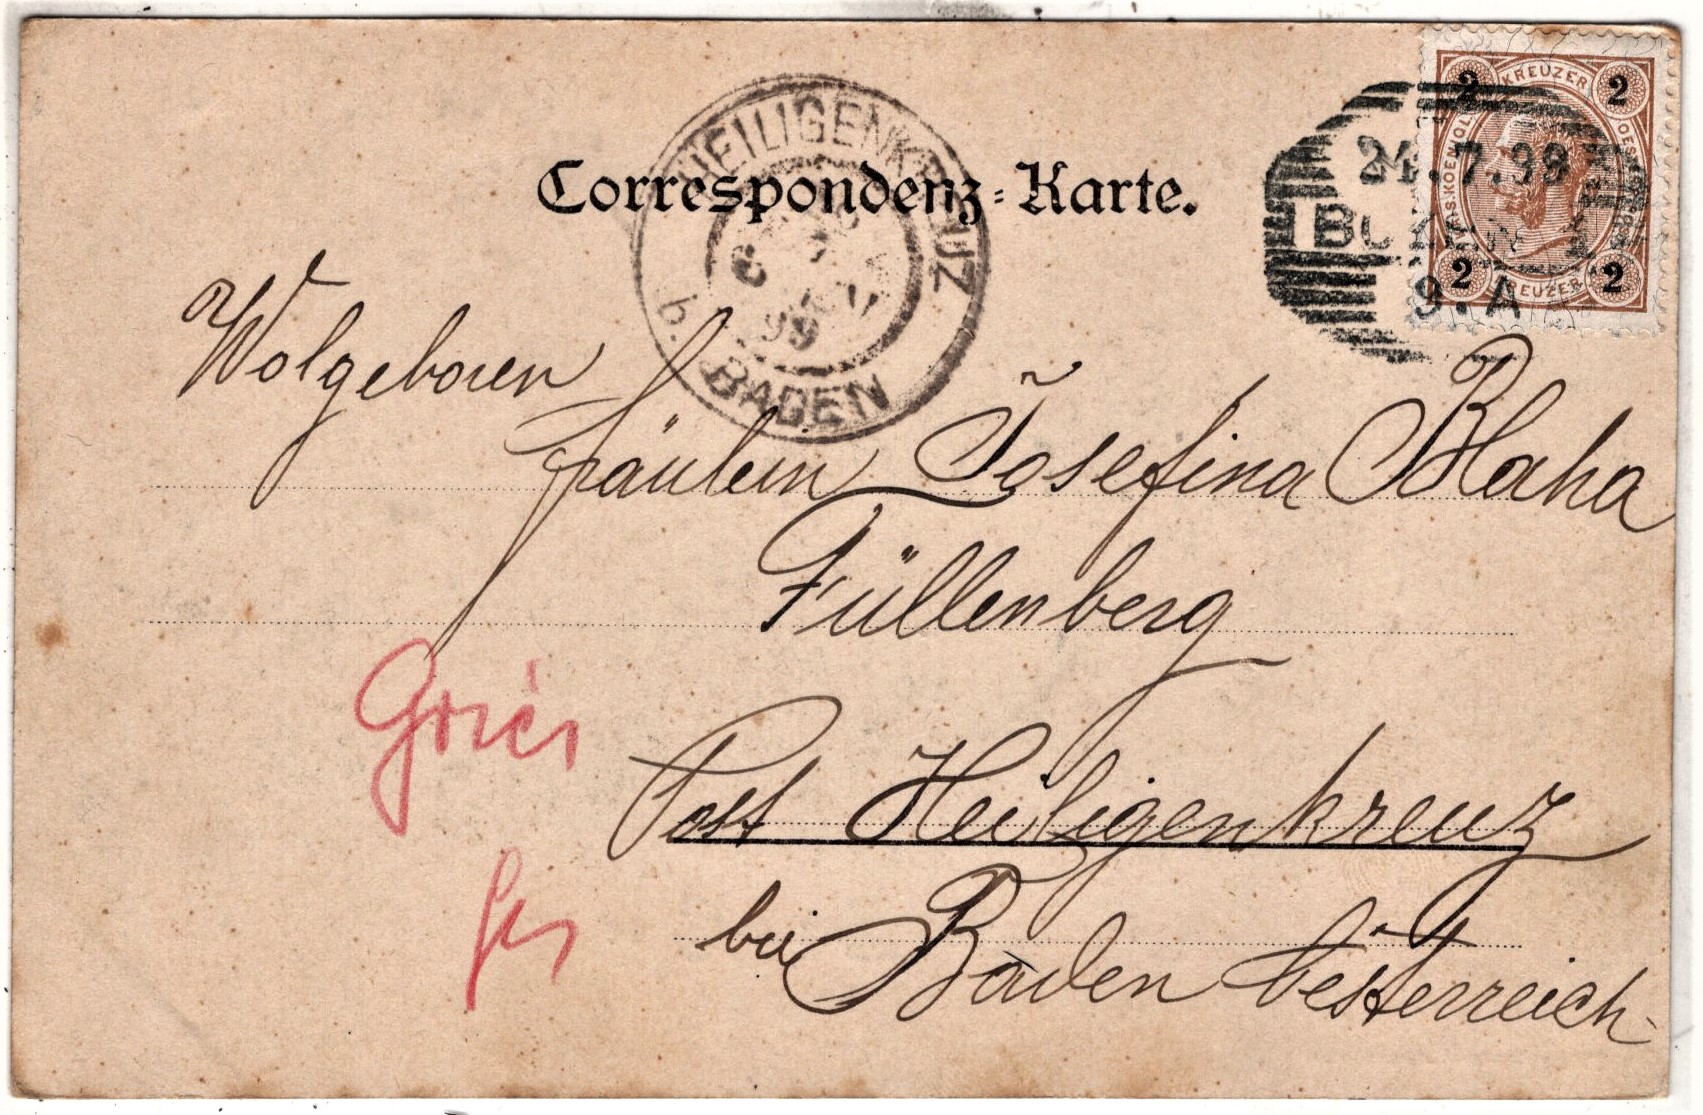 Correspondenz-Karte.
HEILIGENKREUZ
99
b. BADEN
KREUZER
2 2
24.7.99
9.A
2 2
KREUZER
Wolgeboren
Fräulein Josefina Blaha
Füllenberg
Post Heiligenkreuz
bei Baden Oesterreich